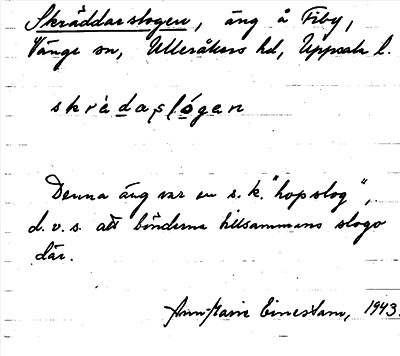 Skräddarslogen, äng å Fiby,
Vänge sn, Ulleråkers hd, Uppsala l.
skrädaslógen
Denna äng var en s.k. "hopslog",
d.v.s. att bönderna tillsammans slogo
där.
Ann-Marie Einestam, 1943.